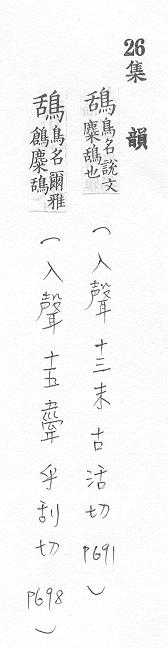 26 集 韻
鴰鳥名說文麋鴰也(入聲 十三末 古活切 P691)
鴰鳥名爾雅鶬麋鴰(入聲 十五舝 乎刮切 P698)